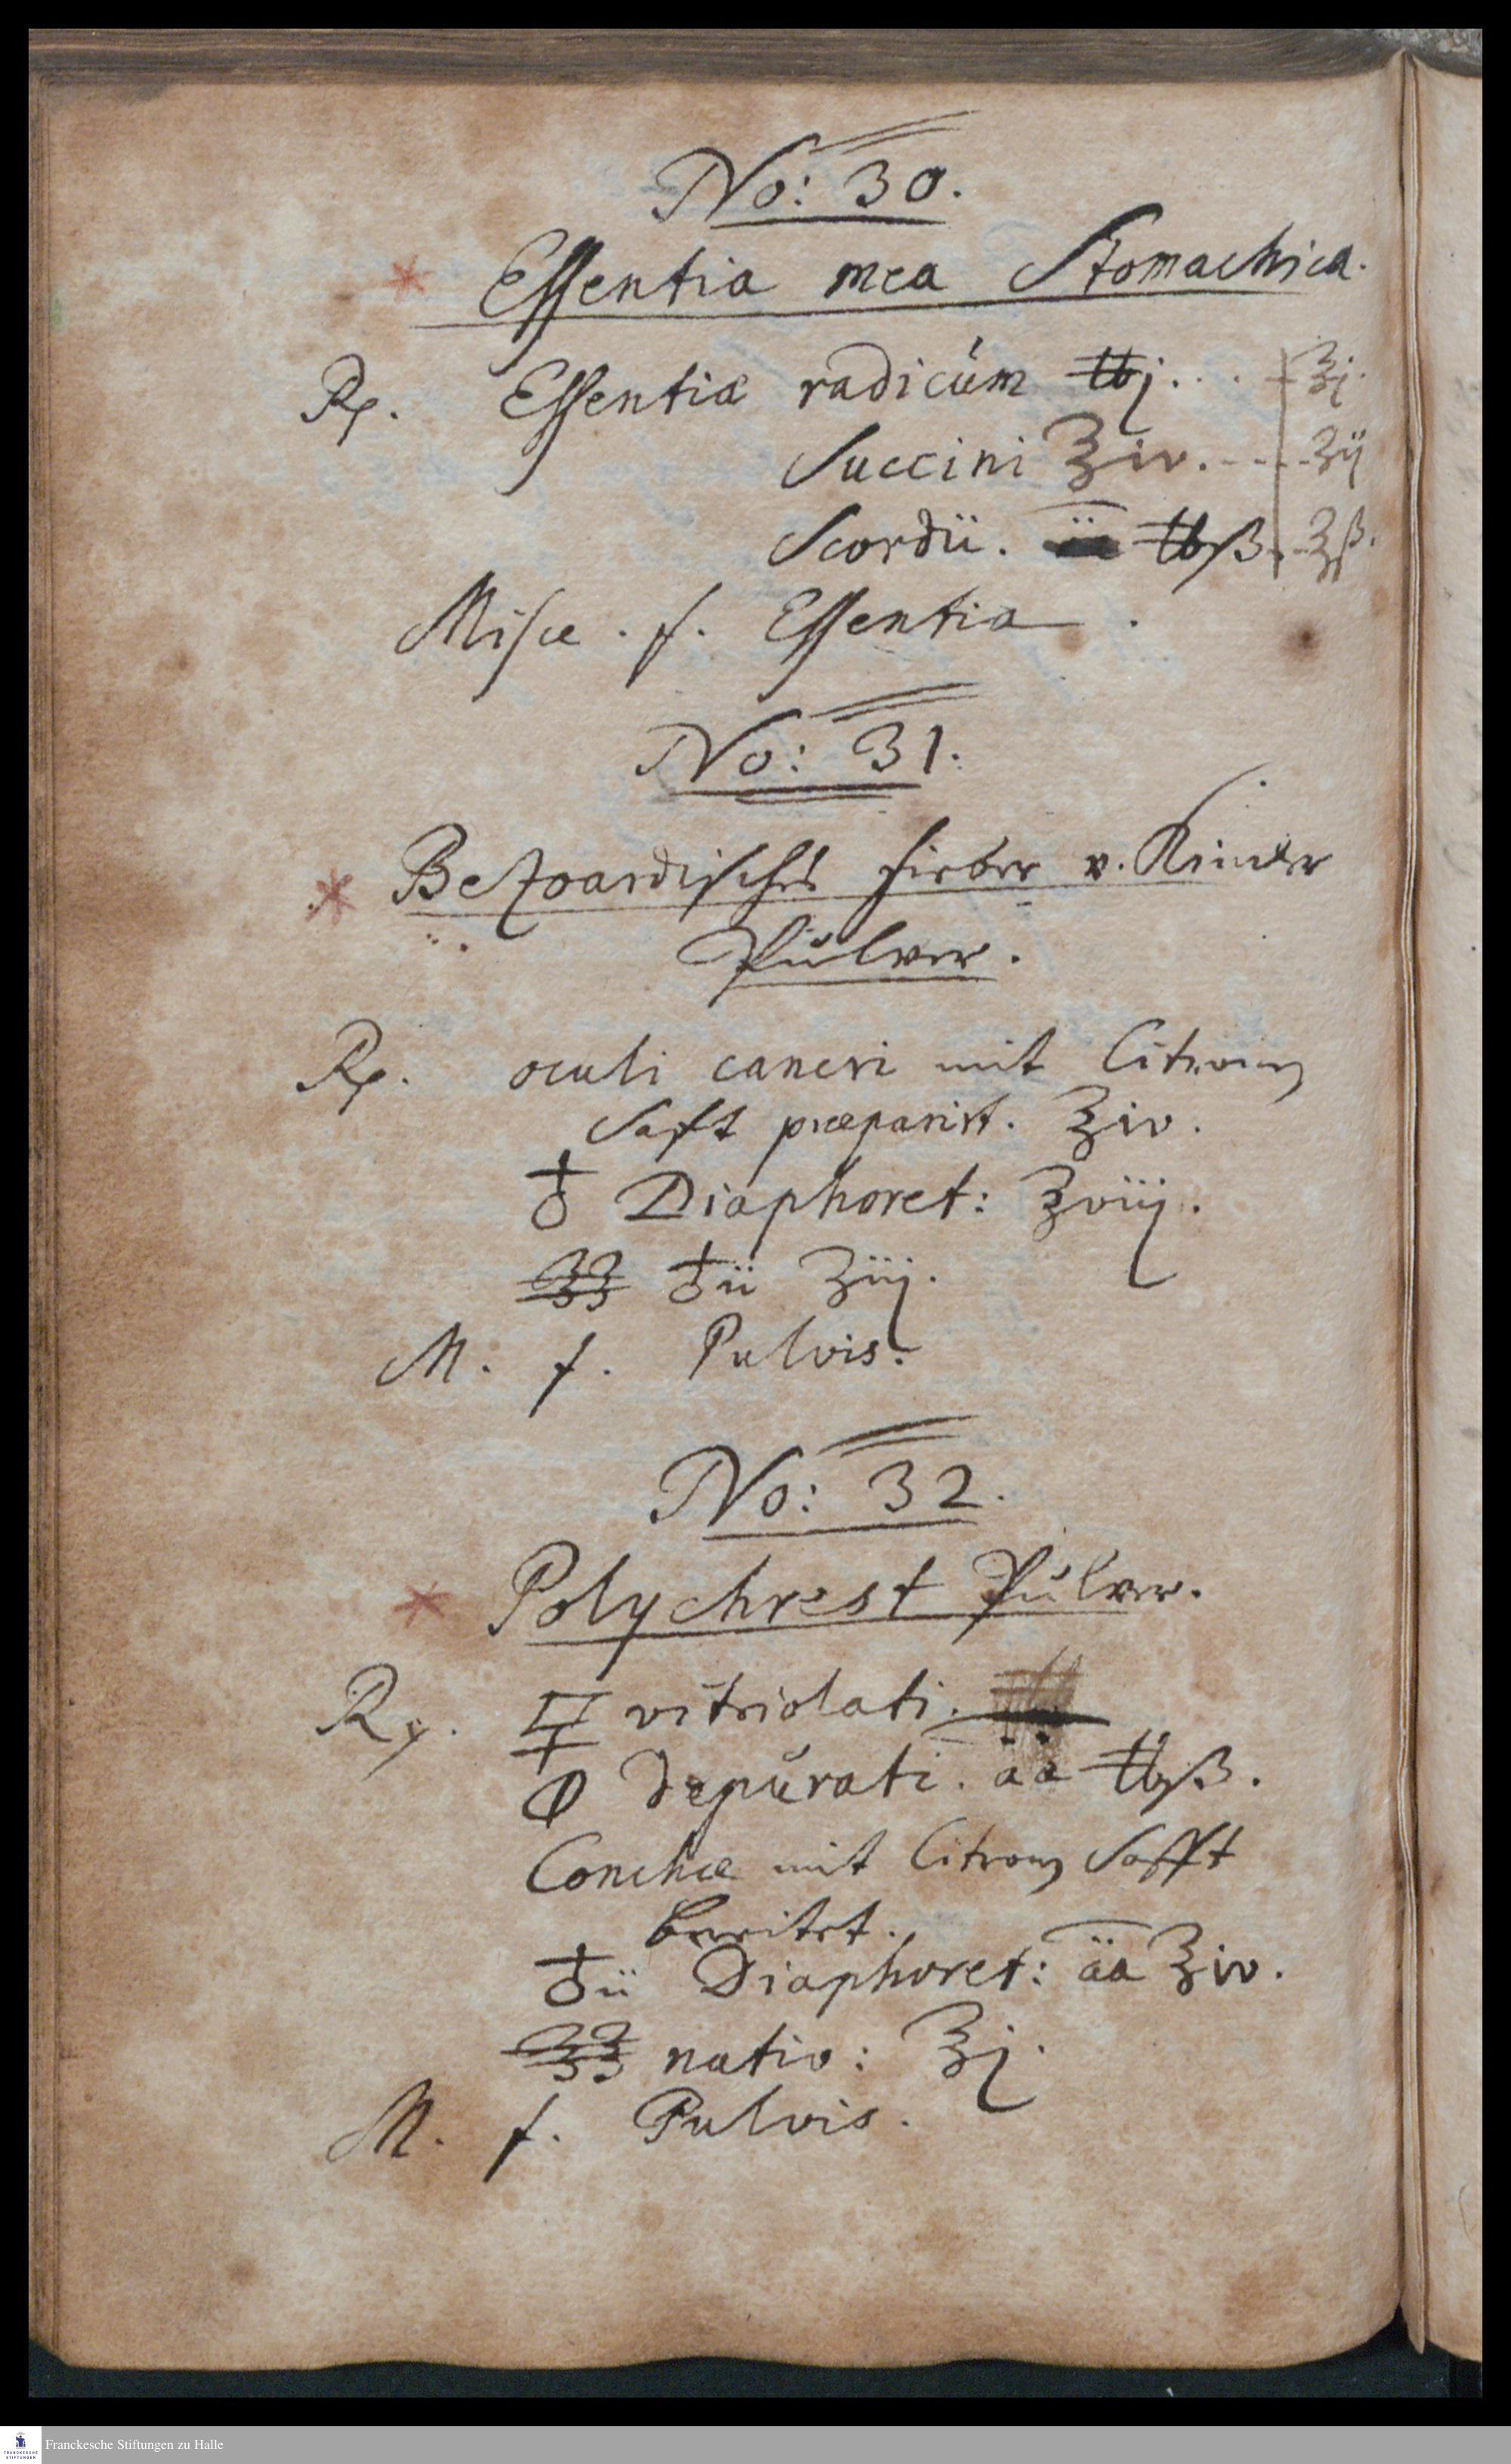 No: 30.
* Essentia mea Stomachica.
Rp. Essentiæ radicúm ℔j. . . - ʒj.
Succini ℥iv. - - - ʒij
Scordii. ℔ß. - ʒß.
Misce. f. Essentia.
No: 31.
* Bezoardisches fieber v. Kinder
Pulver.
Rp. oculi cancri mit Citronen
Saft præparirt. ℥iv.
♁ Diaphoret: ℥viij.
♁ii ℥iij.
M. f. Pulvis.
No: 32.
* Polychrest Pulver.
Rp. vitriolati.
depúrati. āā ℔ß.
Conchæ mit Citronen Safft
bereitet.
♁ii Diaphoret: āā ℥iv.
nativ: ℥j.
M. f. Pulvis.
Franckesche Stiftungen zu Halle